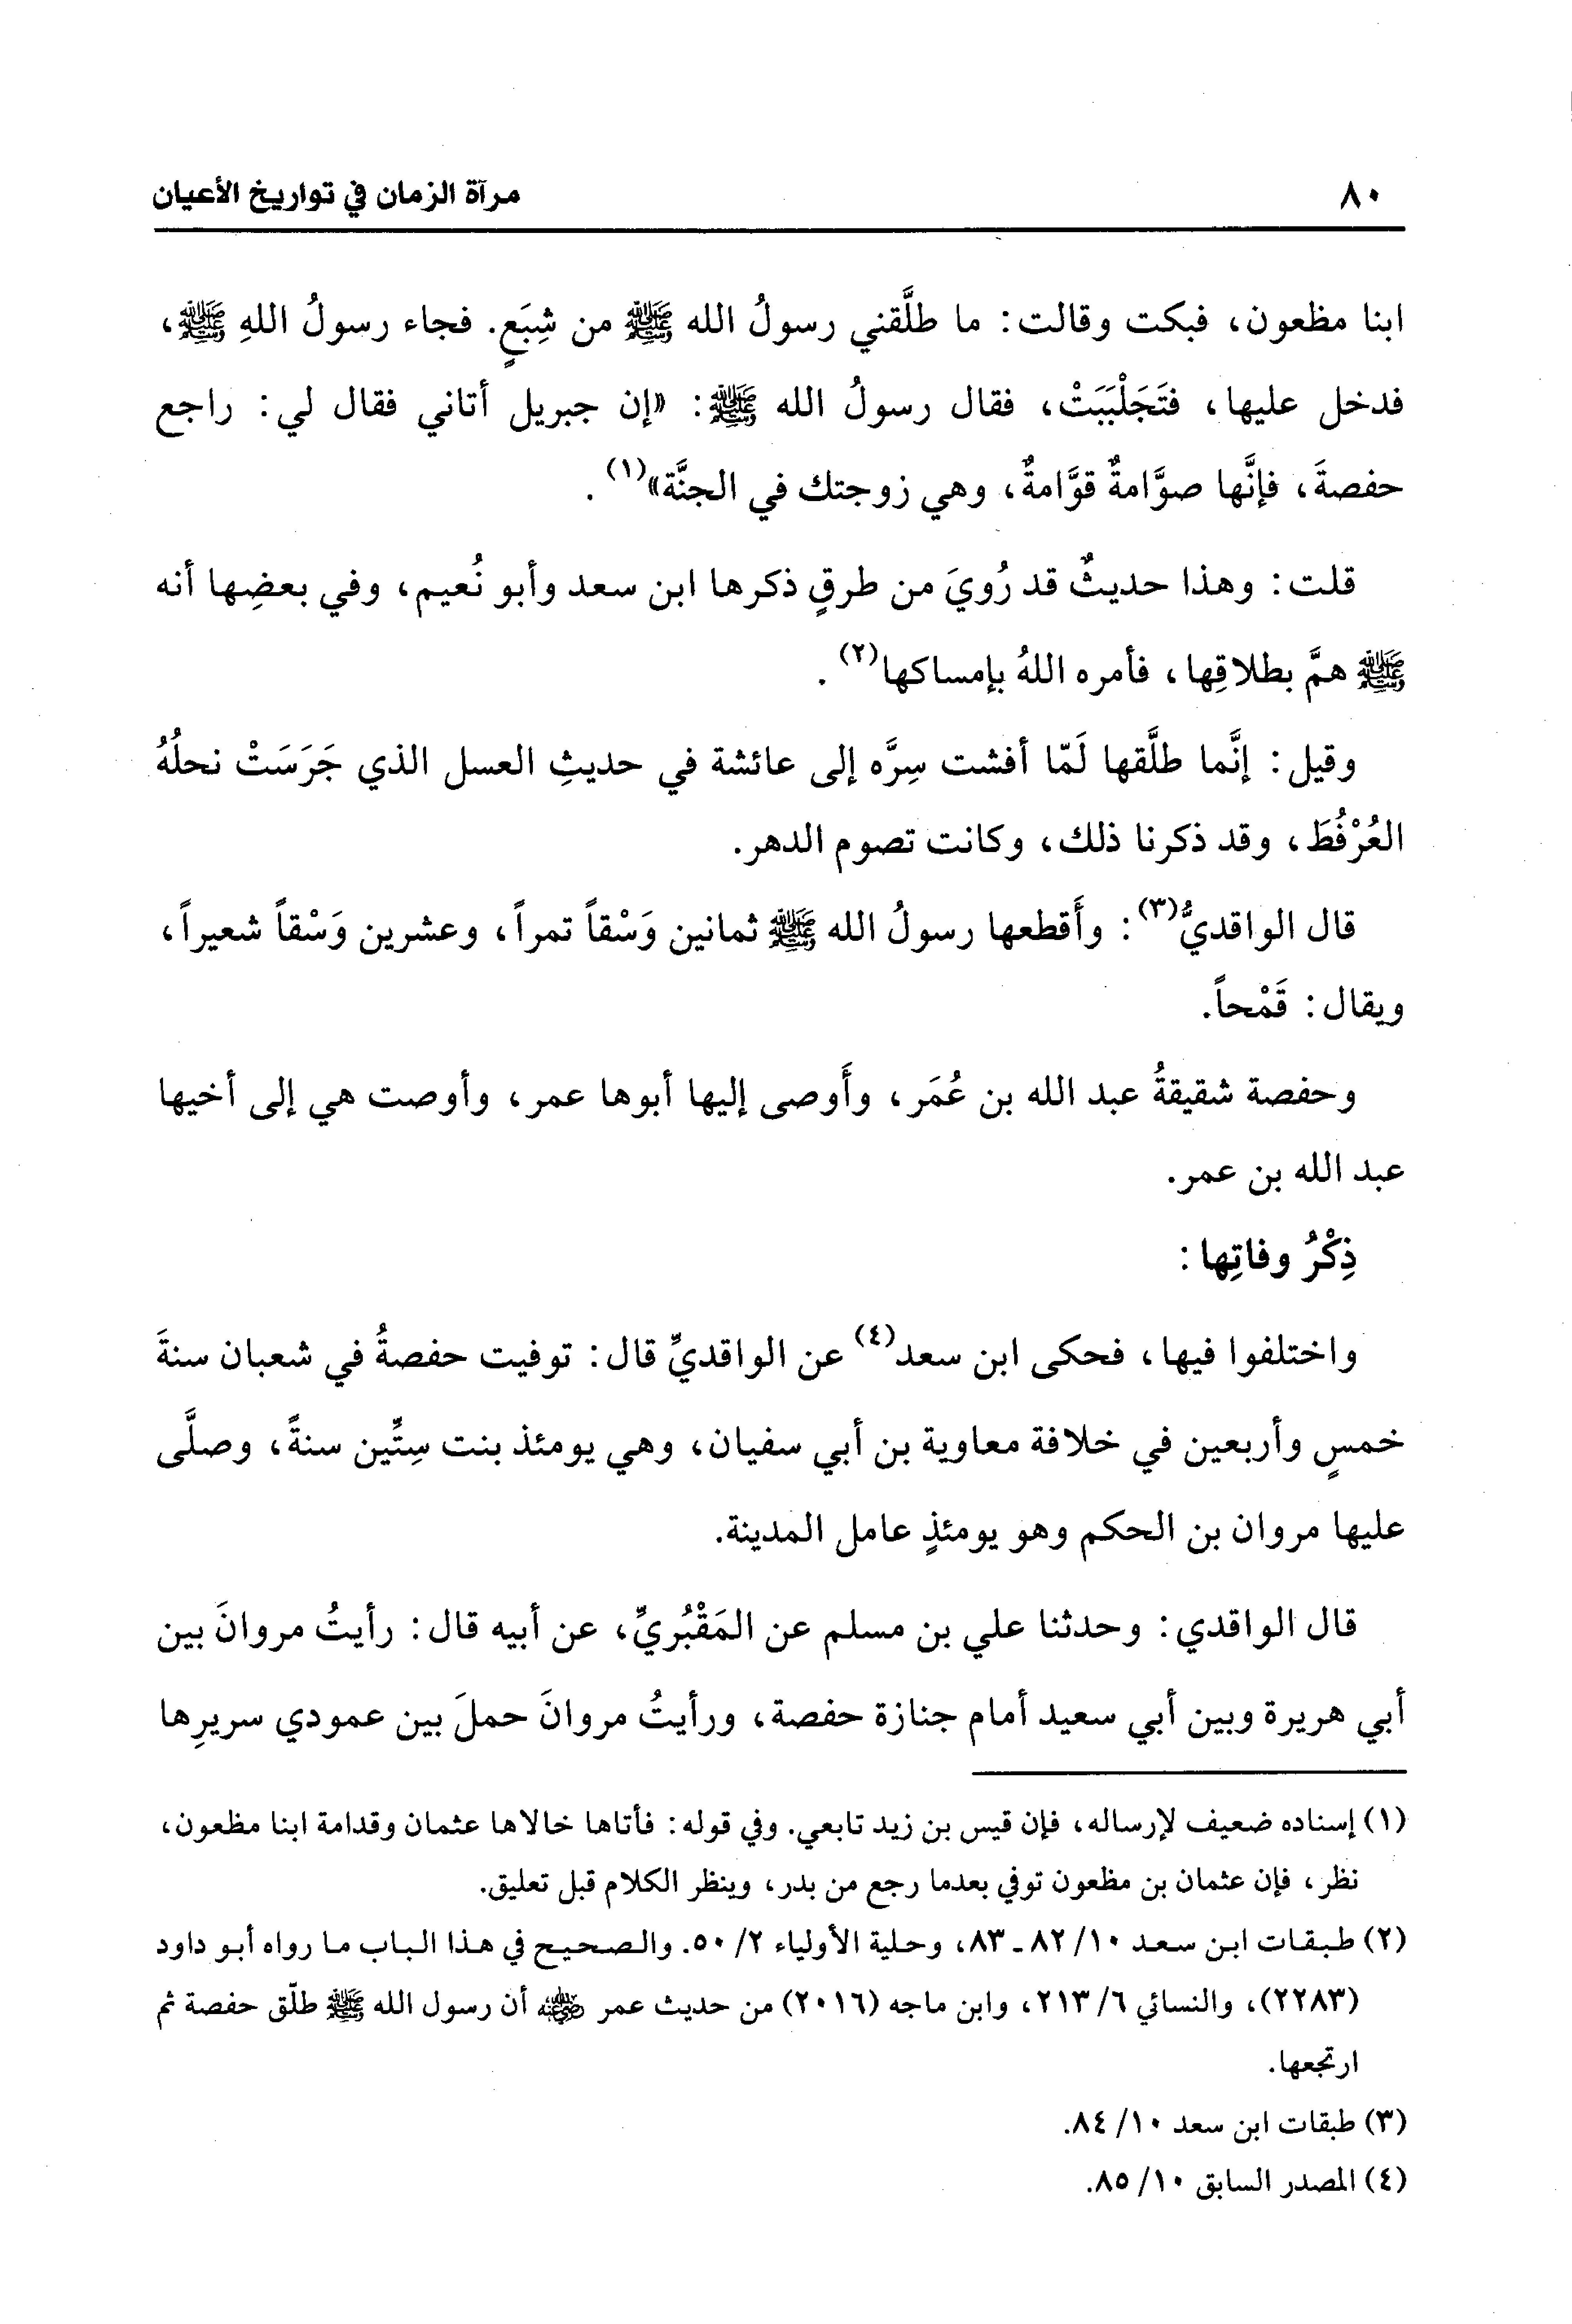 ٨٠ مرآة الزمان في تواريخ الأعيان
ابنا مظعون، فبكت وقالت: ما طلَّقني رسولُ الله ﷺ من شِبَعٍ. فجاء رسولُ اللهِ ﷺ،
فدخل عليها، فتَجَلْبَبَتْ، فقال رسولُ الله ﷺ: «إن جبريل أتاني فقال لي: راجع
حفصةَ، فإنَّها صوَّامةٌ قوَّامةٌ، وهي زوجتك في الجنَّة»(١).
قلت: وهذا حديثٌ قد رُويَ من طرقٍ ذكرها ابن سعد وأبو نُعيم، وفي بعضِها أنه
ﷺ همَّ بطلاقِها، فأمره اللهُ بإمساكها(٢).
وقيل: إنَّما طلَّقها لَمّا أفشت سِرَّه إلى عائشة في حديثِ العسل الذي جَرَسَتْ نحلُهُ
العُرْفُطَ، وقد ذكرنا ذلك، وكانت تصوم الدهر.
قال الواقديُّ(٣): وأَقطعها رسولُ الله ﷺ ثمانين وَسْقاً تمراً، وعشرين وَسْقاً شعيراً،
ويقال: قَمْحاً.
وحفصة شقيقةُ عبد الله بن عُمَر، وأَوصى إليها أبوها عمر، وأوصت هي إلى أخيها
عبد الله بن عمر.
ذِكْرُ وفاتِها:
واختلفوا فيها، فحكى ابن سعد(٤) عن الواقديِّ قال: توفيت حفصةُ في شعبان سنةَ
خمسٍ وأربعين في خلافة معاوية بن أبي سفيان، وهي يومئذ بنت سِتِّين سنةً، وصلَّى
عليها مروان بن الحكم وهو يومئذٍ عامل المدينة.
قال الواقدي: وحدثنا علي بن مسلم عن المَقْبُريِّ، عن أبيه قال: رأيتُ مروانَ بين
أبي هريرة وبين أبي سعيد أمام جنازة حفصة، ورأيتُ مروانَ حملَ بين عمودي سريرِها
(١) إسناده ضعيف لإرساله، فإن قيس بن زيد تابعي. وفي قوله: فأتاها خالاها عثمان وقدامة ابنا مظعون،
نظر، فإن عثمان بن مظعون توفي بعدما رجع من بدر، وينظر الكلام قبل تعليق.
(٢) طبقات ابن سعد ١٠/ ٨٢ ـ ٨٣، وحلية الأولياء ٢/ ٥٠. والصحيح في هذا الباب ما رواه أبو داود
(٢٢٨٣)، والنسائي ٦/ ٢١٣، وابن ماجه (٢٠١٦) من حديث عمر رضي الله عنه أن رسول الله ﷺ طلّق حفصة ثم
ارتجعها.
(٣) طبقات ابن سعد ١٠/ ٨٤.
(٤) المصدر السابق ١٠/ ٨٥.